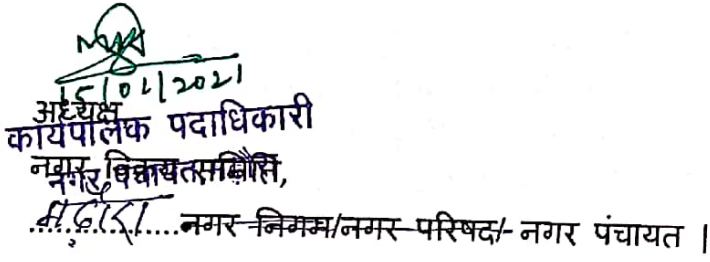 15/01/2021
अध्यक्ष
कार्यपालक पदाधिकारी
नगर विक्रय समिति,
नगर पंचायत,
.................नगर निगम/नगर परिषद/ नगर पंचायत ।